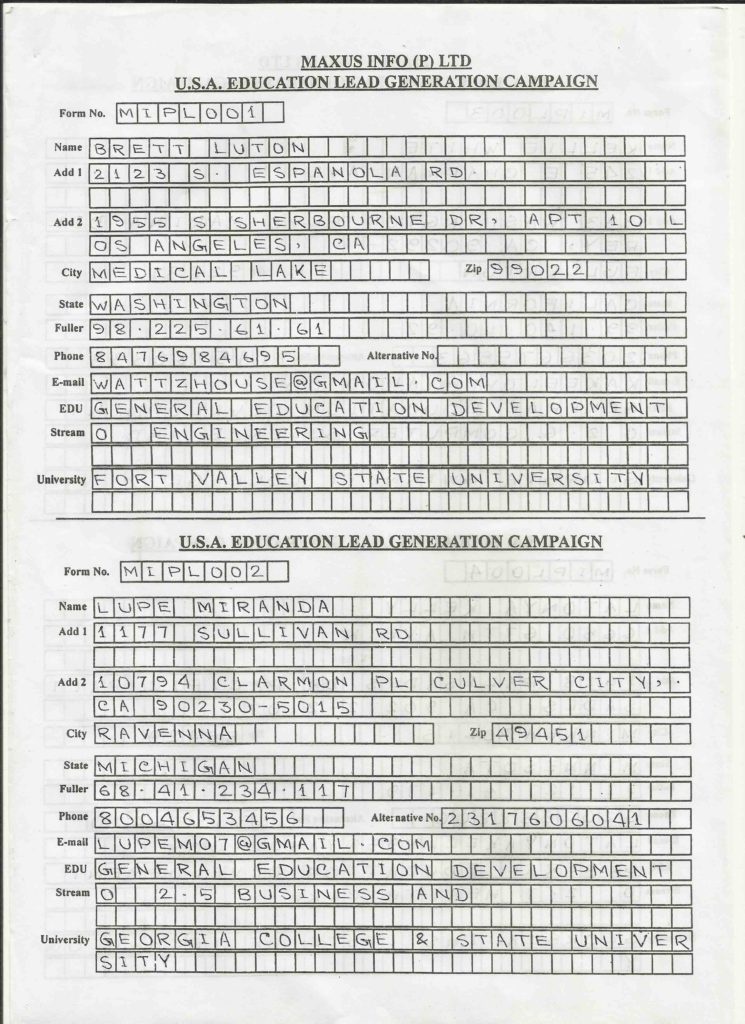 MAXUS INFO (P) LTD
U.S.A. EDUCATION LEAD GENERATION CAMPAIGN
Form No. MIPL001
Name BRETT LUTON
Add 1 2123 S. ESPANOLA RD.
Add 2 1955 S SHERBOURNE DR, APT 10 L
OS ANGELES, CA
City MEDICAL LAKE Zip 99022
State WASHINGTON
Fuller 98.225.61.61
Phone 8476984695 Alternative No.
E-mail WATTZHOUSE@GMAIL.COM
EDU GENERAL EDUCATION DEVELOPMENT
Stream 0 ENGINEERING
University FORT VALLEY STATE UNIVERSITY
U.S.A. EDUCATION LEAD GENERATION CAMPAIGN
Form No. MIPL002
Name LUPE MIRANDA
Add 1 1177 SULLIVAN RD
Add 2 10794 CLARMON PL CULVER CITY,
CA 90230-5015
City RAVENNA Zip 49451
State MICHIGAN
Fuller 68.41.234.117
Phone 8004653456 Alternative No. 2317606041
E-mail LUPEM07@GMAIL.COM
EDU GENERAL EDUCATION DEVELOPMENT
Stream 0 2.5 BUSINESS AND
University GEORGIA COLLEGE & STATE UNIVER
SITY